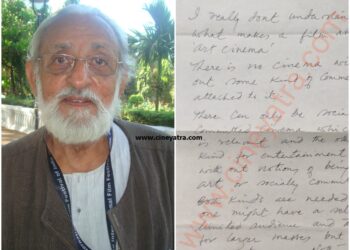 www.cineyatra.com
I really don't understan
what makes a film an
art cinema!
There is no cinema
out some kind of comme
attached to it.
There can only be social
committed cinema whic
is relevant and the oth
kind for entertainment
without notions of being
art or socially commi
Both kinds are needed
one might have a sel
limited audience and
for larger masses, but